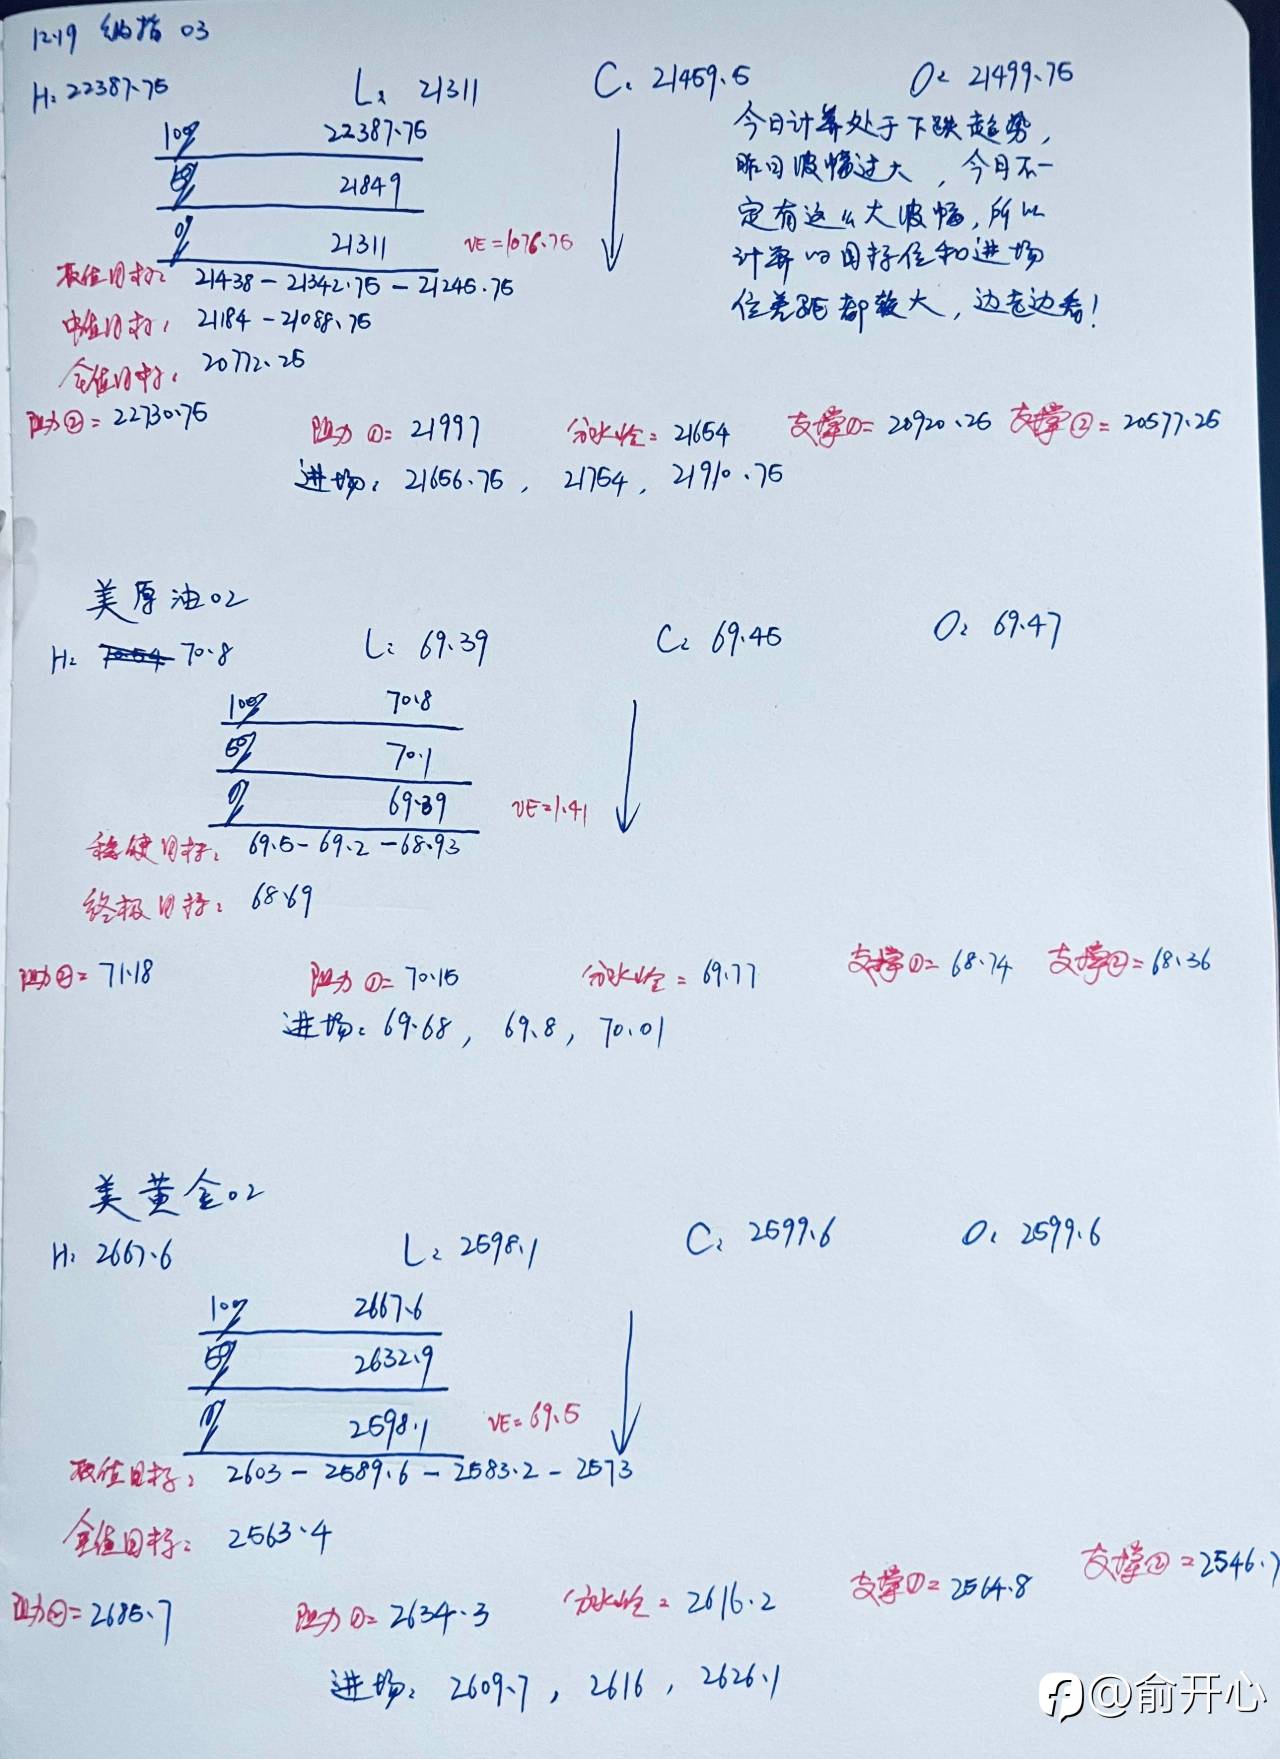 12.19 纳指 03
H: 22387.75 L: 21311 C: 21459.5 O: 21499.75
100% 22387.75
50% 21849
0% 21311 VE=1076.75
今日计算处于下跌趋势,
昨日波幅过大,今日不一
定有这么大波幅,所以
计算的目标位和进场
位差距都较大,边走边看!
极值目标: 21438-21342.75-21245.75
中值目标: 21184-21088.75
全值目标: 20772.25
阻力②=22730.75 阻力①=21997 分水岭=21654 支撑①=20920.25 支撑②=20577.25
进场: 21656.75, 21754, 21910.75
美原油02
H: 70.8 L: 69.39 C: 69.45 O: 69.47
100% 70.8
50% 70.1
0% 69.39 VE=1.41
稳健目标: 69.5-69.2-68.93
终极目标: 68.69
阻力②=71.18 阻力①=70.15 分水岭=69.77 支撑①=68.74 支撑②=68.36
进场: 69.68, 69.8, 70.01
美黄金02
H: 2667.6 L: 2598.1 C: 2599.6 O: 2599.6
100% 2667.6
50% 2632.9
0% 2598.1 VE=69.5
极值目标: 2603-2589.6-2583.2-2573
全值目标: 2563.4
阻力②=2685.7 阻力①=2634.3 分水岭=2616.2 支撑①=2564.8 支撑②=2546.7
进场: 2609.7, 2616, 2626.1
@俞开心